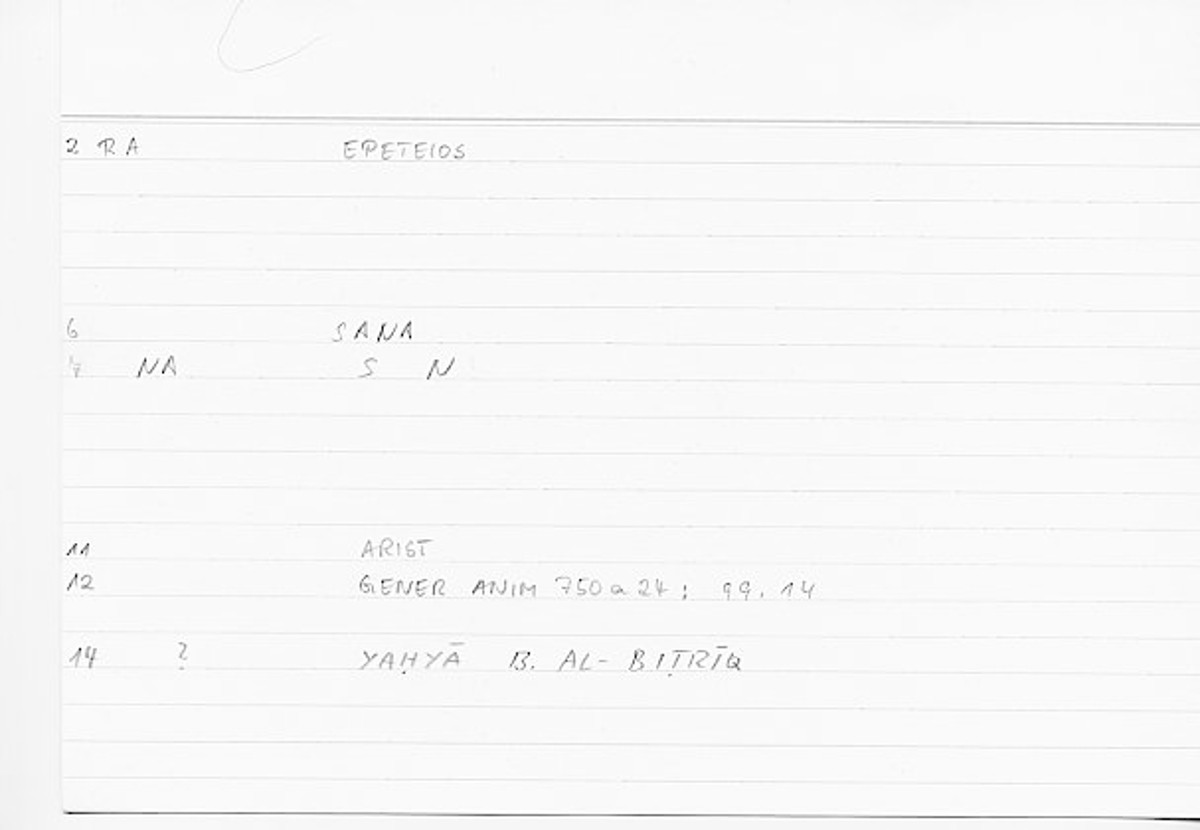 2 RA EPETEIOS
6 SANA
7 NA S N
11 ARIST
12 GENER ANIM 750a24; 99.14
14 ? YAḤYĀ B. AL-BIṬRĪQ